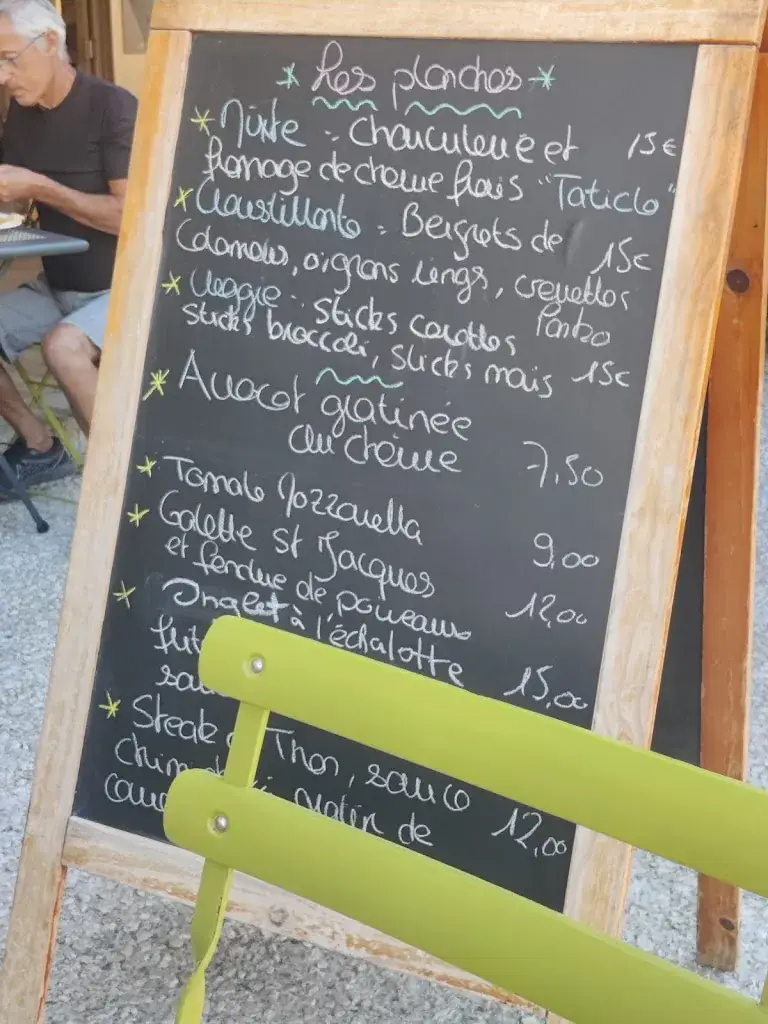 * Les planches *
* Mixte : Charcuterie et 15€
fromage de chèvre frais "Taticlo"
* Croustillante : Beignets de 15€
Calamars, oignons rings, crevettes
Panko
* Veggie : Sticks carottes
sticks broccoli, sticks maïs 15€
* Avocat gratinée
au chèvre 7,50
* Tomate Mozzarella 9,00
* Galette St Jacques
et fondue de poireaux 12,00
* Onglet à l'échalotte
15,00
* Steak Thon, sauce
gratin de 12,00